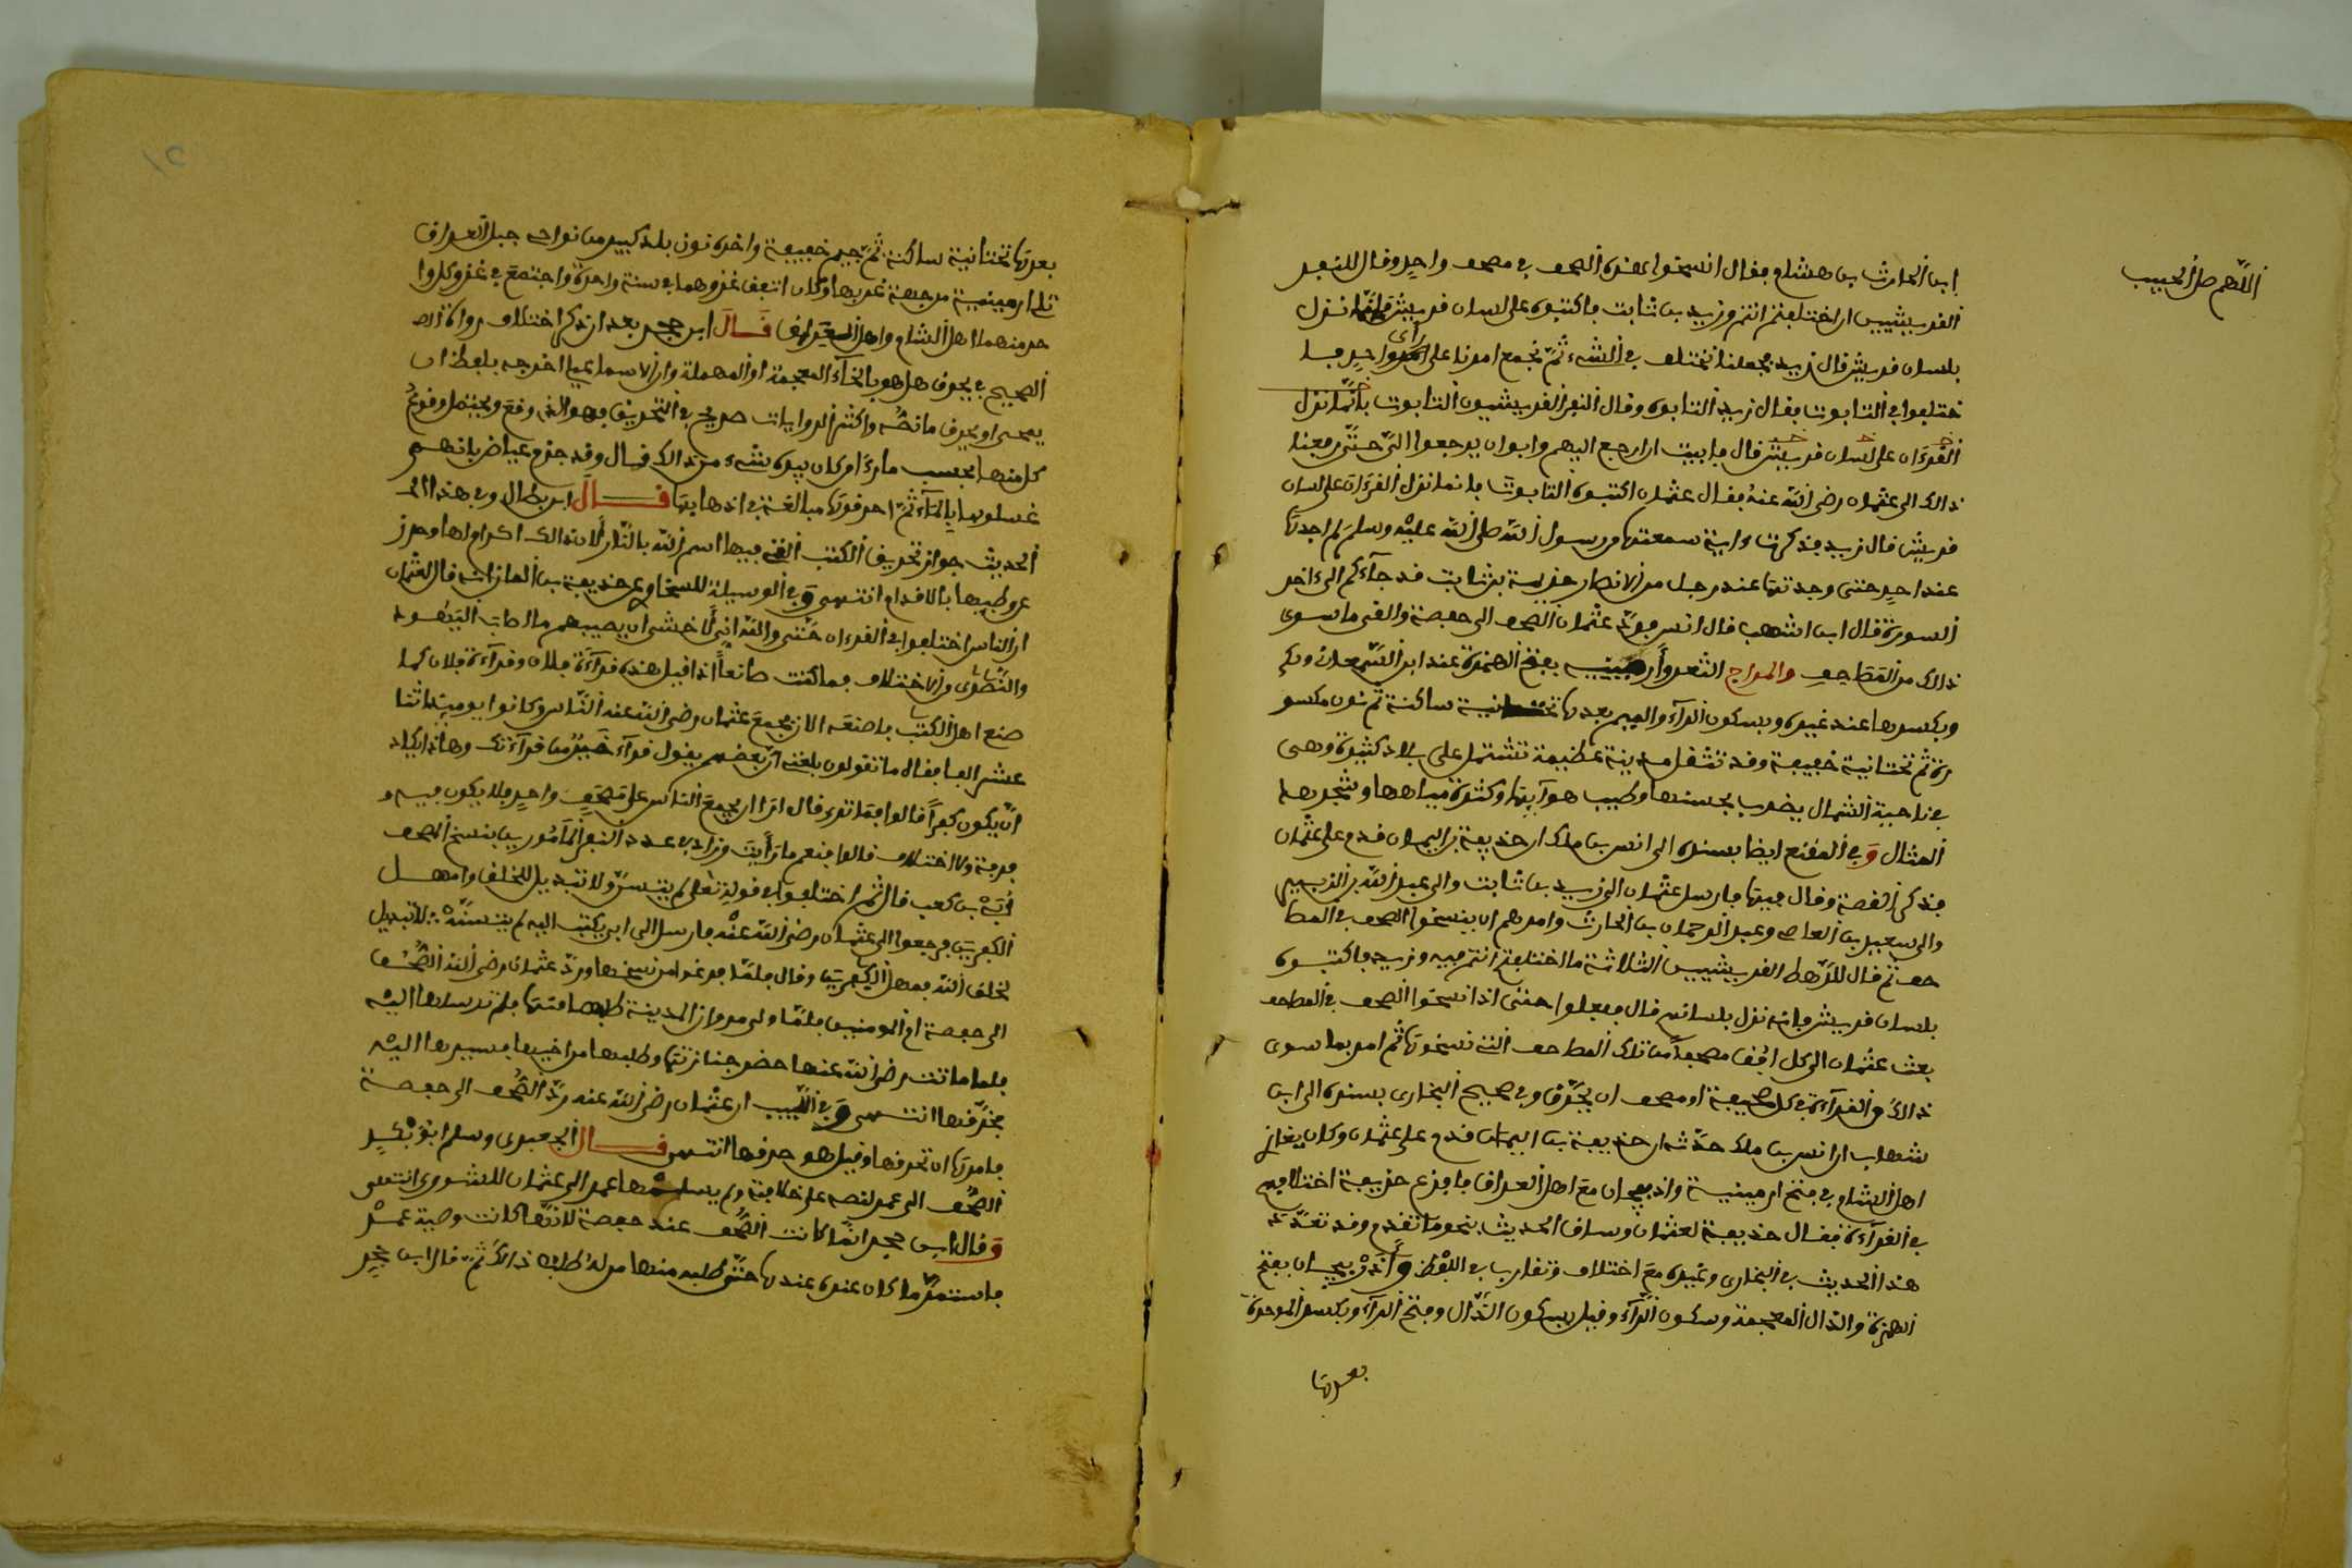 اللهم صل الحبيب
ابن الحارث بن هشام فقال انسخوا هذه الصحف في مصحف واحد وقال للنفر
القريشيين ان اختلفتم انتم وزيد بن ثابت فاكتبوه على لسان قريش فانما نزل
بلسان قريش قال زيد فجعلنا نختلف في الشيء ثم نجمع امرنا على رأى واحد فا
ختلفوا في التابوت فقال زيد التابوه وقال النفر القريشيون التابوت فانما نزل
القرءان على لسان قريش قال فابيت ان ارجع اليهم وابوا ان يرجعوا الي حتى رفعنا
ذالك الى عثمان رضى الله عنه فقال عثمان اكتبوه التابوت فانما نزل القرءان على لسان
قريش قال زيد فذكرت ءاية سمعتها من رسول الله صلى الله عليه وسلم لم اجدها
عند احد حتى وجدتها عند رجل من الانصار خزيمة بن ثابت لقد جآءكم الى ءاخر
السورة قال ابن اشهب قال انس فرد عثمان الصحف الى حفصة والقى ما سوى
ذالك من المصاحف والمراج الثغر وأرمينية بفتح الهمزة عند ابن السمعان وكـ
وبكسرها عند غيره وبسكون الرآء والميم بعدها تحتانية ساكنة ثم نون مكسو
رة ثم تحتانية خفيفة وقد تثقل مدينة عظيمة تشتمل على بلاد كثيرة وهى
في ناحية الشمال يضرب بحسنها وطيب هوآيها وكثرة مياهها وشجرها
المثال و في المقنع ايضا بسنده الى انس بن ملك ان حذيفة بن اليمان قدم على عثمان
فذكر القصة وقال فيها فارسل عثمان الى زيد بن ثابت والى عبد الله بن الزبير
والى سعيد بن العاص وعبد الرحمان بن الحارث وامرهم ان ينسخوا الصحف في المصا
حف ثم قال للرهط القريشيين الثلاثة ما اختلفتم انتم فيه وزيد فاكتبوه
بلسان قريش فانه نزل بلسانهم قال ففعلوا حتى اذا نسخوا الصحف في المصاحف
بعث عثمان الى كل افق مصحفا من تلك المصاحف التى نسخوها ثم امر بما سوى
ذالك من القرآءة في كل صحيفة او مصحف ان يحرق وفي صحيح البخارى بسنده الى ابن
شهاب ان انس بن ملك حدثه ان حذيفة بن اليمان قدم على عثمان وكان يغازى
اهل الشام في فتح ارمينية واذربيجان مع اهل العراق فافزع حذيفة اختلافهم
في القرآءة فقال حذيفة لعثمان وساق الحديث بنحو ما تقدم وقد تعدد
هذا الحديث في البخارى وغيره مع اختلاف وتقارب في اللفظ وأذربيجان بفتح
الهمزة والذال المعجمة وسكون الرآء وقيل بسكون الذال وفتح الرآء وبكسر الموحدة
بعدها
بعدها تحتانية ساكنة ثم جيم خفيفة واخره نون بلد كبير من نواحى جبل العراق
تلى ارمينية من جهة غربها وكان اتفق غزوهما في سنة واحدة واجتمع في غزو كل وا
حد منهما اهل الشام واهل العراق قال ابن حجر بعد ان ذكر اختلاف رواة الصـ
الصحيح في يحرق هل هو بالخآء المعجمة او المهملة وان الاسماعيلى اخرجه بلفظ ان
يمحى او يحرق ما نصه واكثر الروايات صريح في التحريق فهو الذى وقع ويحتمل وقوع
كل منهما بحسب ما رءا من كان بيده شىء من ذالك قال وقد جزم عياض بانهم
غسلوها بالمآء ثم احرقوها مبالغة في اذهابها قال ابن بطال وفي هذا الـ
الحديث جواز تحريق الكتب التى فيها اسم الله بالنار لان ذالك اكرام لها وحرز
عن وطيها بالاقدام انتهى و في الوسيلة للسخاوى عن حذيفة بن اليمان انه قال لعثمان
ان الناس اختلفوا في القرءان حتى والله انى لاخشى ان يصيبهم ما اصاب اليهود
والنصارى من الاختلاف فما كنت صانعا اذا قيل هذه قرآءة فلان وقرآءة فلان كما
صنع اهل الكتب فاصنعه الان فجمع عثمان رضى الله عنه الناس وكانوا يوميذ اثنا
عشر الفا فقال ما تقولون بلغنى ان بعضهم يقول قرآءتى خير من قرآءتك وهاذا يكاد
ان يكون كفرا قالوا فما ترى قال ارى ان نجمع الناس على مصحف واحد فلا يكون فيه
فرقة ولا اختلاف قالوا فنعم ما رأيت وزاد في عدد النفر المأمورين بنسخ المصحف
أبى بن كعب قال ثم اختلفوا في قوله تعلى لم يتسن ولا تبديل للخلق وامهل
الكفرين فرجعوا الى عثمان رضى الله عنه فارسل الى ابى يكتب اليه لم يتسنه لا تبديل
لخلق الله فمهل الكفرين وقال فلما فرغوا من نسخها ورد عثمان رضى الله الصحف
الى حفصة ام المومنين فلما ولى مروان المدينة طلبها منها فلم ترسلها اليه
فلما ماتت رضى الله عنها حضر جنازتها وطلبها من اخيها فسيرها اليه
فحرقها انتهى و في اللبيب ان عثمان رضى الله عنه رد الصحف الى حفصة
فامرها ان تحرقها وقيل هو حرقها انتهى قال الجعبرى وسلم ابو بكر
الصحف الى عمر لنصه على خلافته ولم يسلمها عمر الى عثمان للشورى انتهى
وقال ابن حجر انما كانت الصحف عند حفصة لانها كانت وصية عمر
فاستمر ما كان عنده عندها حتى طلبه منها من له طلب ذالك ثم قال ابن حجر